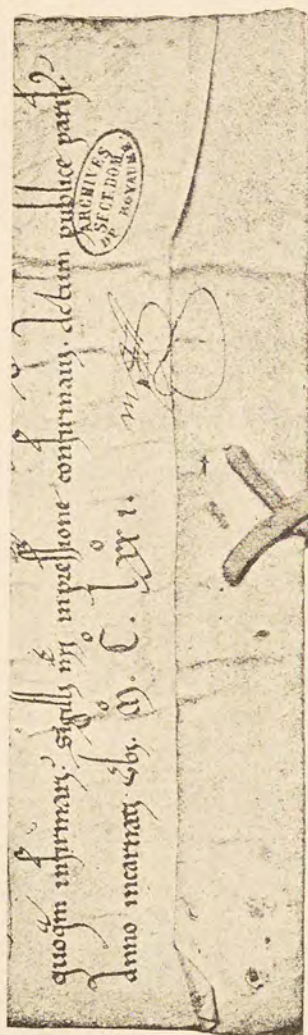 quoq̄m infirmari: sigilli n̄ri inpressione confirmari. Actum publice parisi⁹.
Anno incarnati ūbi. M̊. C̊. lxx̊ i.
ARCHIVES
SECT. DOM.
DU ROYAUME